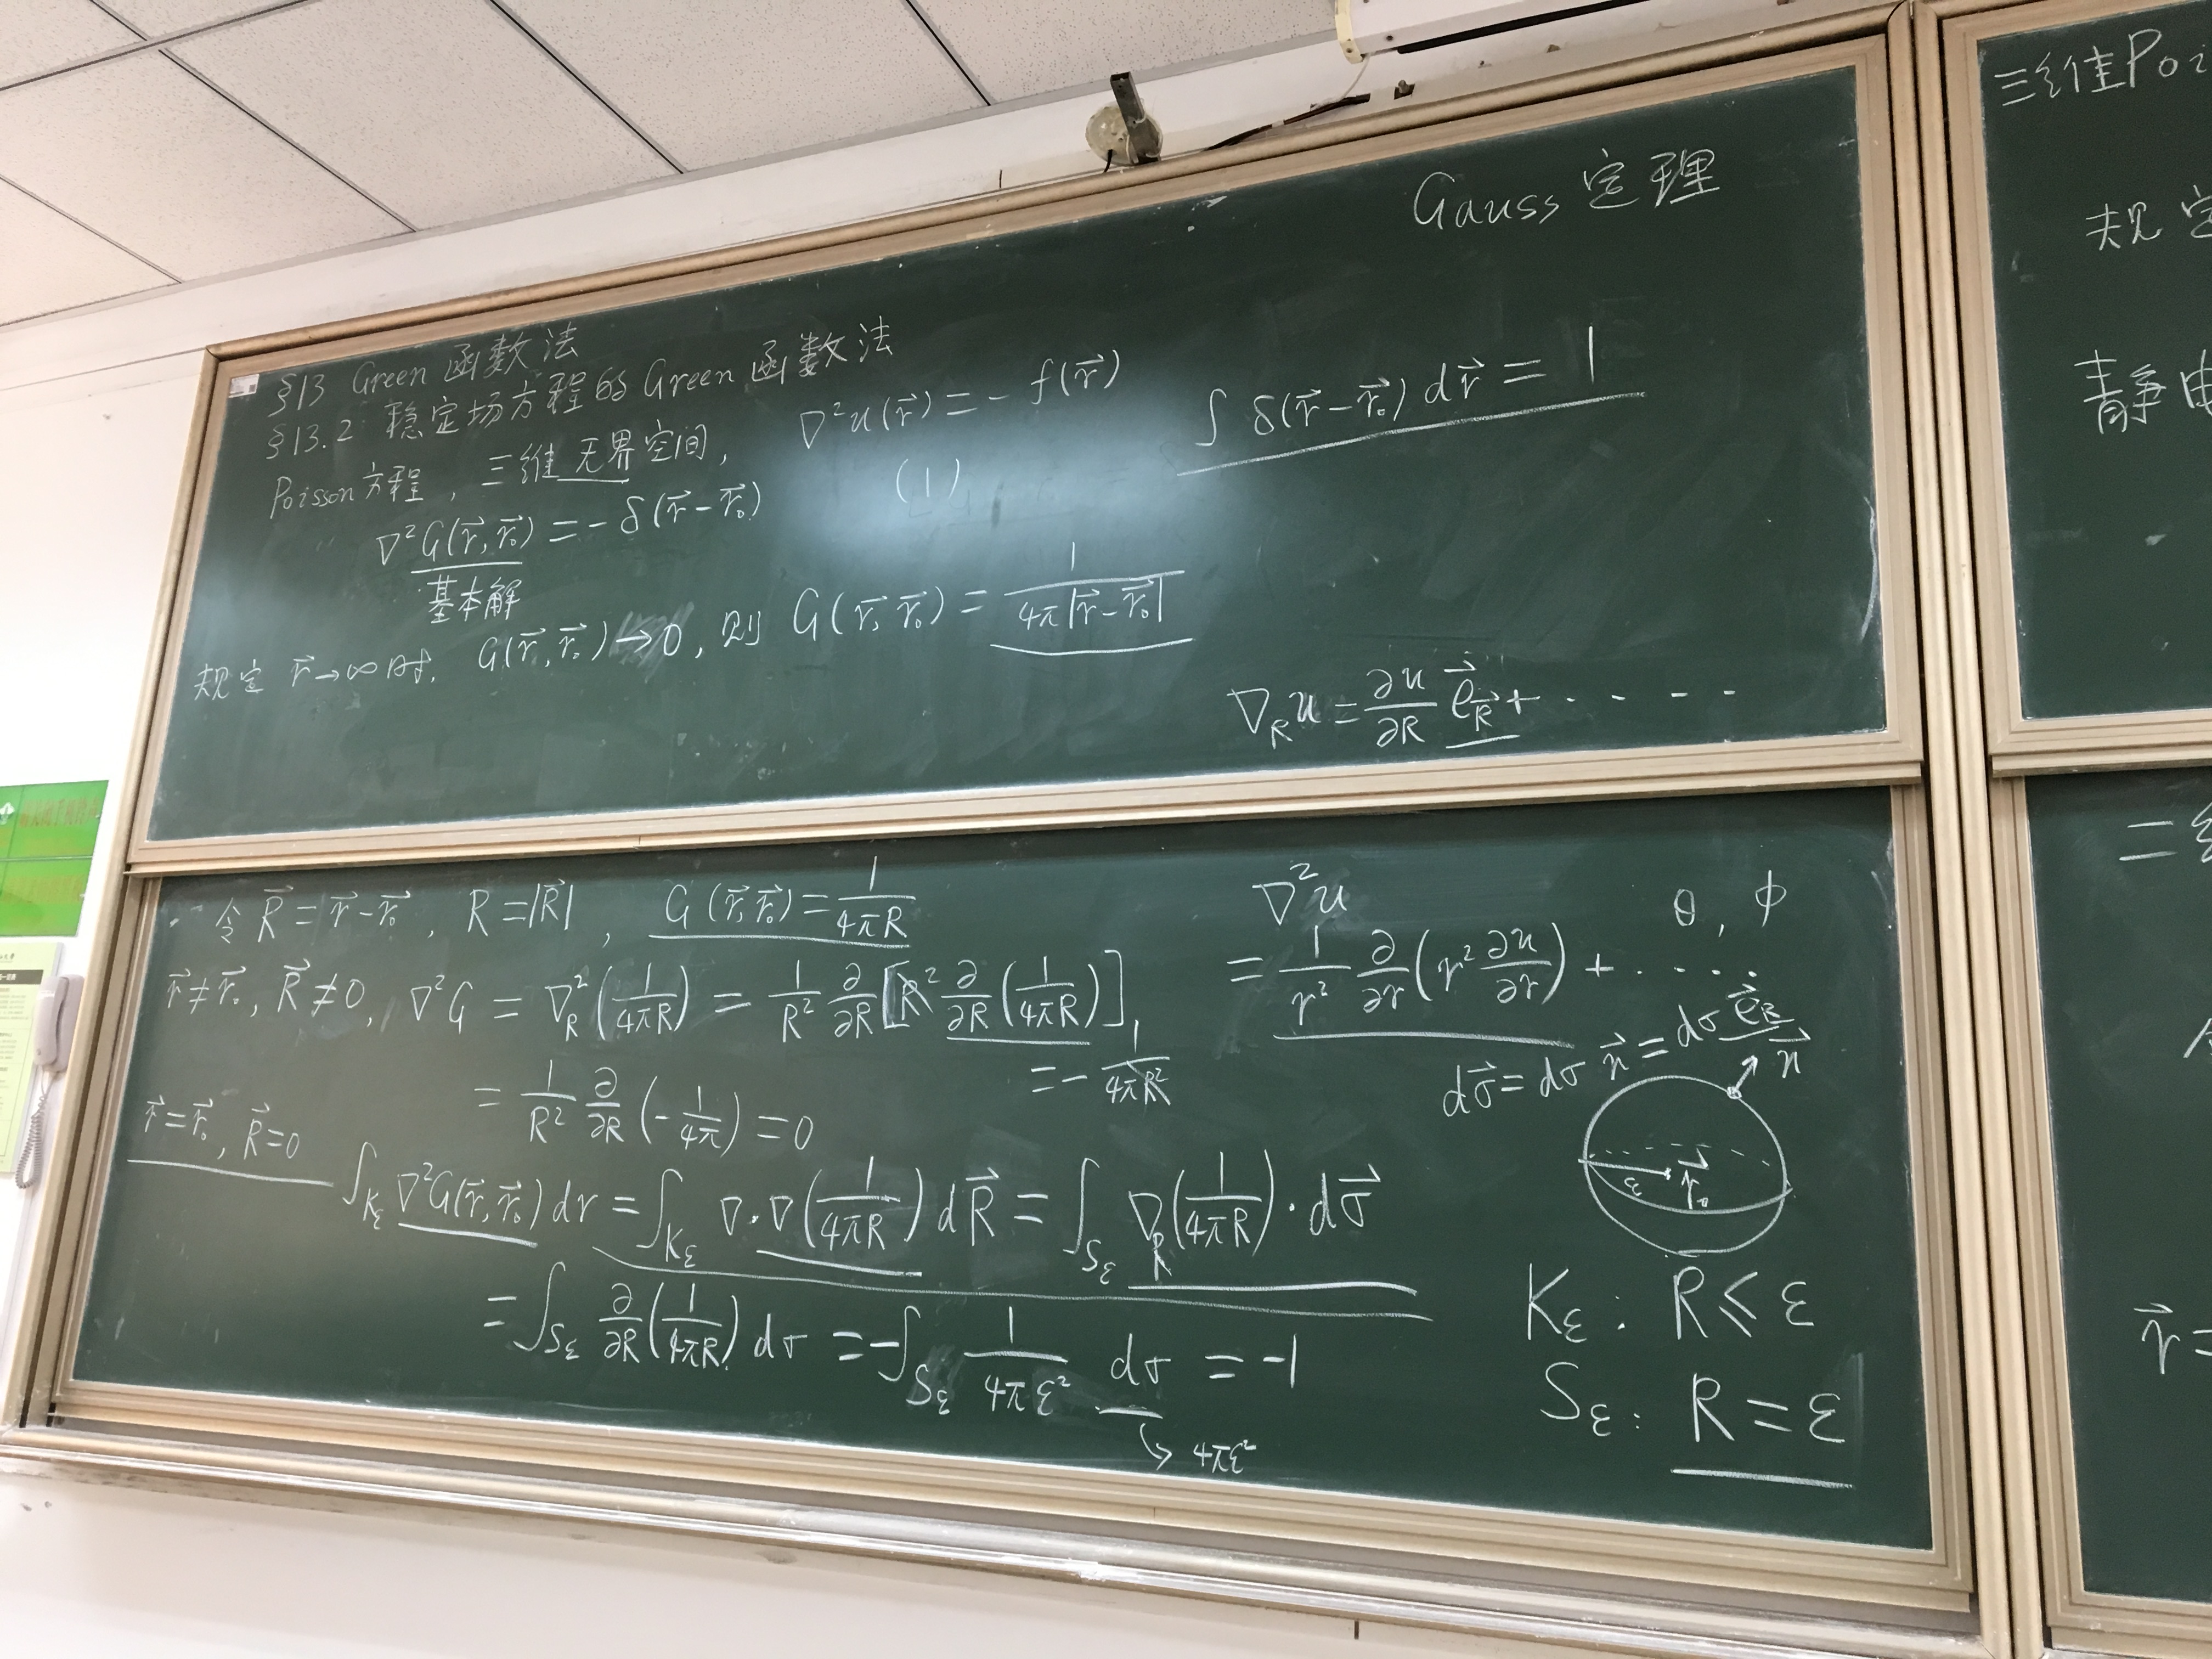 Gauss 定理
§13 Green 函数法
§13.2 稳定场方程的 Green 函数法
Poisson 方程, 三维无界空间, ∇²u(r⃗) = - f(r⃗)
∫ δ(r⃗-r⃗₀) dr⃗ = 1
∇²G(r⃗,r⃗₀) = - δ(r⃗-r⃗₀) (1)
基本解
规定 r⃗→∞时, G(r⃗,r⃗₀)→0, 则 G(r⃗,r⃗₀) = 1/(4π|r⃗-r⃗₀|)
∇_R u = ∂u/∂R e⃗_R⃗ + · · · ·
令 R⃗ = r⃗-r⃗₀, R = |R⃗|, G(r⃗,r⃗₀) = 1/(4πR)
r⃗≠r⃗₀, R⃗≠0, ∇²G = ∇²_R (1/(4πR)) = 1/R² ∂/∂R [R² ∂/∂R (1/(4πR))],
= - 1/(4πR²)
= 1/R² ∂/∂R (-1/(4π)) = 0
r⃗=r⃗₀, R⃗=0
∫_Kε ∇²G(r⃗,r⃗₀) dr = ∫_Kε ∇·∇(1/(4πR)) dR⃗ = ∫_Sε ∇_R(1/(4πR))·dσ⃗
= ∫_Sε ∂/∂R (1/(4πR)) dσ = -∫_Sε 1/(4πε²) dσ = -1
→ 4πε²
∇²u
θ, φ
= 1/r² ∂/∂r (r² ∂u/∂r) + · · · ·
dσ⃗ = dσ n⃗ = dσ e⃗_R
n⃗
ε r⃗₀
Kε: R ≤ ε
Sε: R = ε
三维Poi
规定
静电
二
r⃗ =